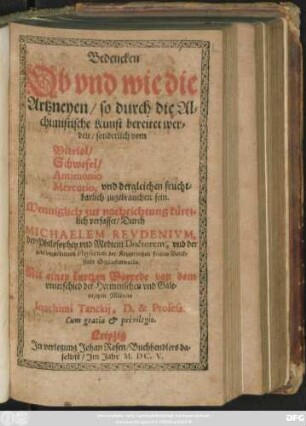 Bedencken
Ob vnd wie die
Artzneyen / so durch die Al-
chimistische Kunst bereitet wer-
den / sonderlich vom
Vitriol /
Schwefel /
Antimonio
Mercurio, vnd dergleichen frucht-
barlich zugebrauchen sein.
Menniglich zur nachrichtung kürtz-
lich verfasset / Durch
MICHAELEM REVDENIVM,
der Philosophey vnd Medicin Doctorem, vnd der
Mit einer kurtzen Vorrede von dem
vnterschied der Hermetischen vnd Gale-
nischen Medicin
Joachimi Tanckij, D. & Profess.
Cum gratia & privilegio.
Leipzig
In verlegung Johan Rosen / Buchhendlers da-
selbst / Im Jahr M. DC. V.